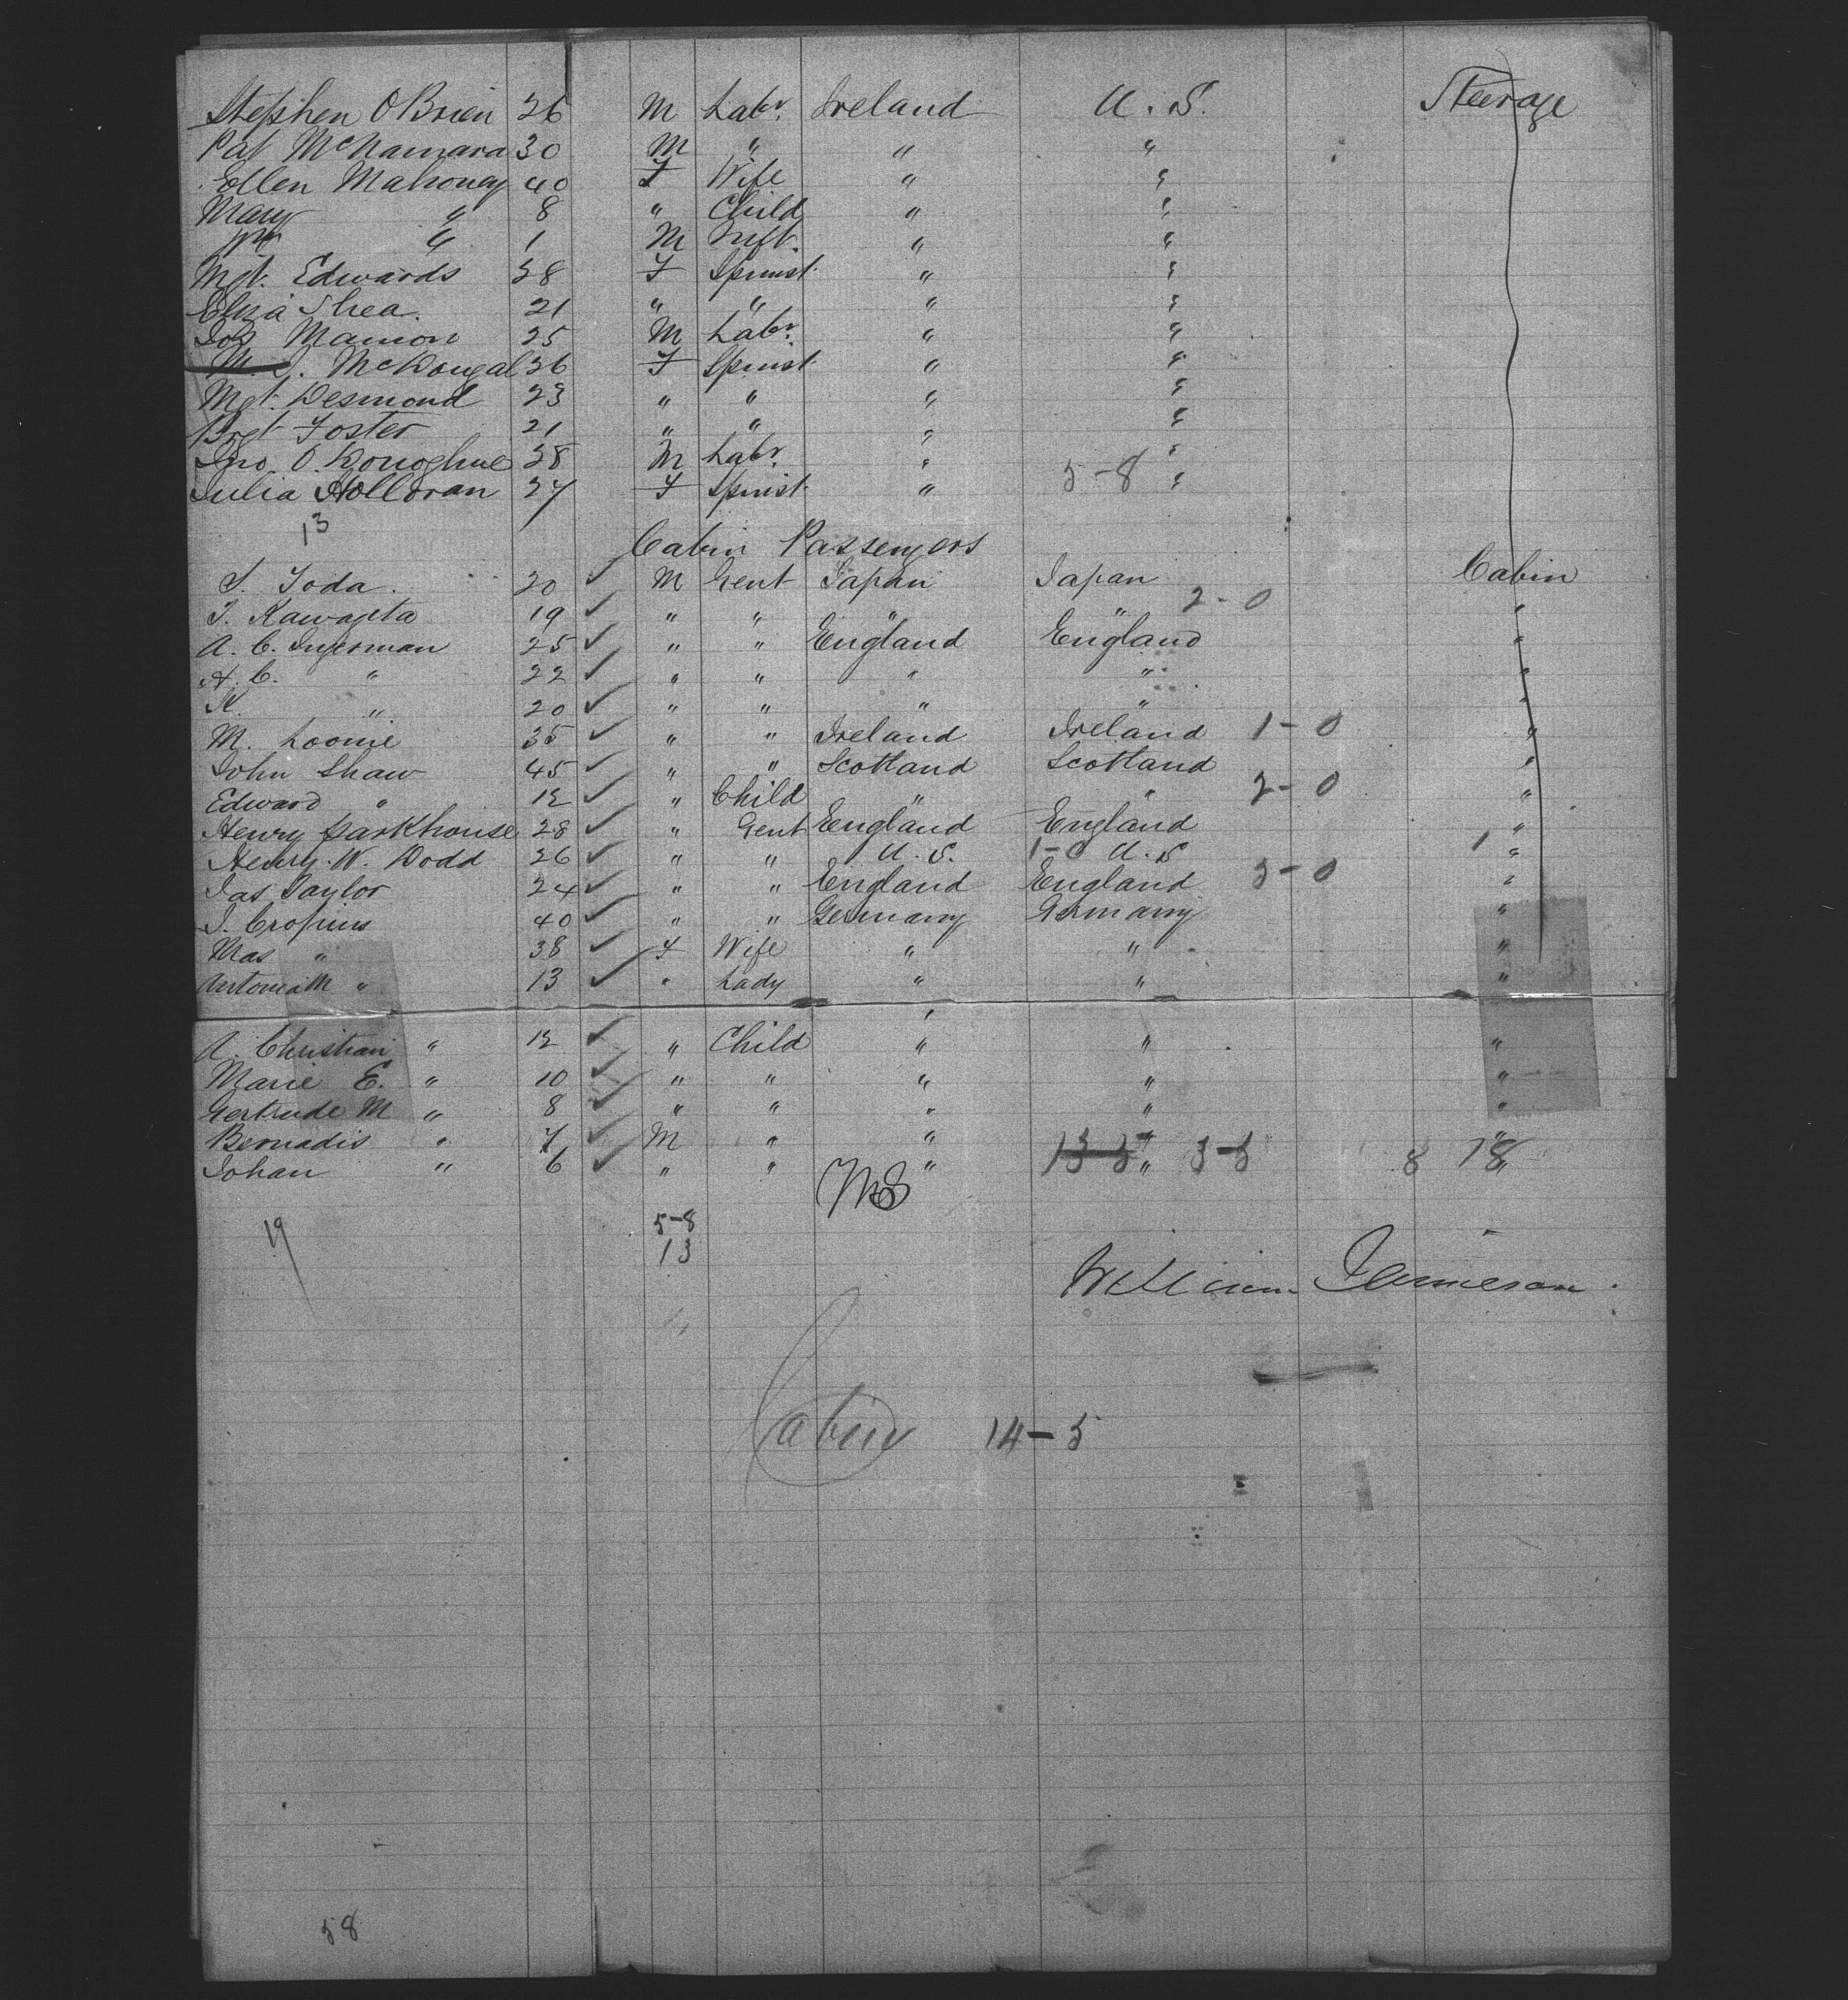 Stephen O Brien 26 M Labr. Ireland U. S. Steerage
Pat McNamara 30 M " " "
Ellen Mahoney 40 F Wife " "
Mary " 8 " Child " "
Wm " 1 M Inft. " "
Mgt. Edwards 28 F Spinst. " "
Eliza Shea. 21 " " " "
Jos Mannon 25 M Labr. " "
M. J. McDougal 26 F Spinst. " "
Mgt. Desmond 23 " " " "
Brgt Foster 21 " " " "
Jno. O. Donoghue 28 M Labr. " "
Julia Holloran 27 F Spinst. " 5-8 "
13
Cabin Passengers
S. Toda. 20 ✓ M Gent Japan Japan Cabin
T. Kawageta 19 ✓ " " " " 2-0 "
A. C. Ingerman 25 ✓ " " England England "
H. C. " 22 ✓ " " " " "
K. " 20 ✓ " " " " "
M. Loonie 35 ✓ " " Ireland Ireland 1-0 "
John Shaw 45 ✓ " " Scotland Scotland "
Edward " 12 ✓ " Child " " 2-0 "
Henry Parkhouse 28 ✓ " Gent England England "
Henry W. Dodd 26 ✓ " " U. S. 1-0 U. S 1 "
Jas Taylor 24 ✓ " " England England 5-0 "
J. Cropius 40 ✓ " " Germany Germany "
Mas " 38 ✓ F Wife " " "
Antonia M " 13 ✓ " Lady " " "
A. Christian " 12 ✓ " Child " " "
Marie E. " 10 ✓ " " " " "
Gertrude M " 8 ✓ " " " " "
Bernadis " 7 ✓ M " " " "
Johan " 6 ✓ " " " 13-5 " 3-5 8 18 "
19
5-8
13
William Jamieson.
Cabin 14-5
58